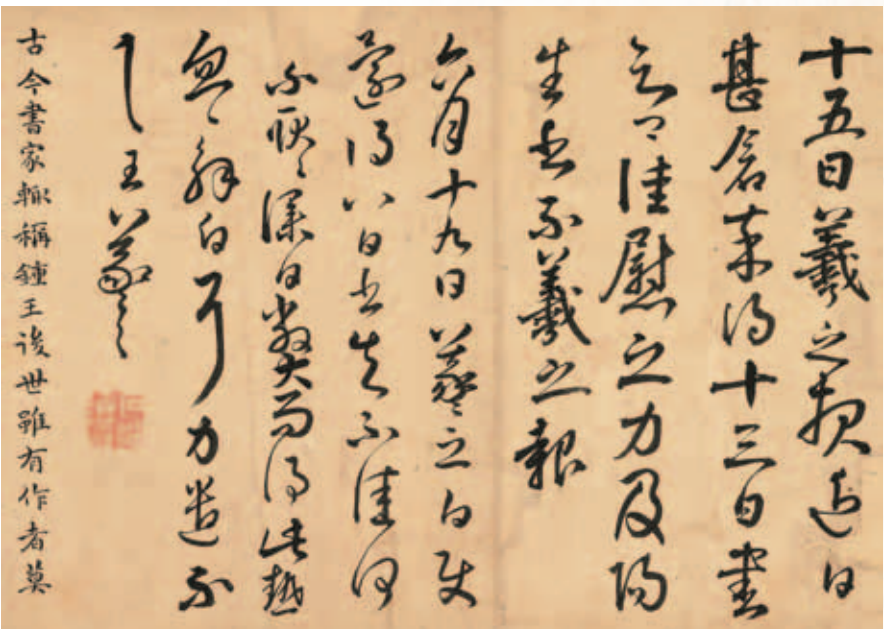 十五日羲之頓近日
甚寒奉得十三日書
知佳慰之力及陽
生書不羲之報
六月十九日羲之白使
還得八日書知不佳何
爾耿耿僕日弊而得此熱
忽忽解日耳力遣不
一一王羲之
古今書家輒稱鍾王後世雖有作者莫